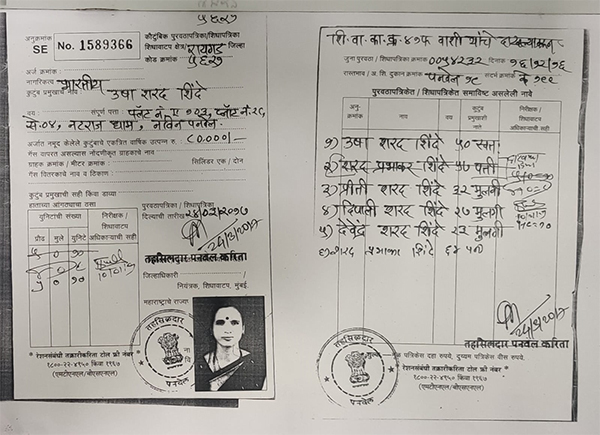 अनुक्रमांक
SE No. 1589366
कौटुंबिक पुरवठापत्रिका/शिधापत्रिका
शिधावाटप क्षेत्र/रायगड जिल्हा
कोड क्रमांक ५६२७
अर्ज क्रमांक :
नागरिकत्व : भारतीय
कुटुंब प्रमुखाचे नाव : उषा शरद शिंदे
संपूर्ण पत्ता : प्लॅट नं. ए १०३, प्लॉट नं. २८,
से.०४, नटराज धाम, नविन पनवेल.
अर्जात नमूद केलेले कुटुंबाचे एकत्रित वार्षिक उत्पन्न रु. ८०,०००/-
गॅस वापरत असल्यास नोंदणीकृत ग्राहकाचे नाव :
ग्राहक क्रमांक / मीटर क्रमांक : सिलिंडर एक / दोन
गॅस वितरकाचे नाव व ठिकाण :
कुटुंब प्रमुखाची सही किंवा डाव्या
हाताच्या आंगठ्याचा ठसा
पुरवठापत्रिका/शिधापत्रिका
दिल्याची तारीख २४/०३/२०१७
युनिटांची संख्या
निरीक्षक /
शिधावाटप
अधिकाऱ्याची सही
प्रौढ मुले युनिटे
24/3/2017
तहसिलदार पनवेल करिता
जिल्हाधिकारी /
नियंत्रक, शिधावाटप, मुंबई.
महाराष्ट्राचे राज्य
तहसिलदार
पनवेल
* रेशनसंबंधी तक्रारीकरिता टोल फ्री नंबर *
१८००-२२-४९५० किंवा १९६७
(एमटीएनएल/बीएसएनएल)
शि. वा. का. क्र. ४१फ वाशी यांचे दाखल्यावरून
जुना पुरवठा / शिधापत्रिका क्रमांक 0054232 दिनांक १६/१२/१६
रास्तभाव / अ. शि. दुकान क्रमांक पनवेल १८ संदर्भ क्रमांक
पुरवठापत्रिकेत / शिधापत्रिकेत समाविष्ट असलेली नावे
अनु-
क्रमांक
नाव
वय
कुटुंब
प्रमुखाशी
नाते
निरीक्षक /
शिधावाटप
अधिकाऱ्याची
सही
१) उषा शरद शिंदे ५० स्वतः
२) शरद प्रभाकर शिंदे ५७ पती
३) प्रीती शरद शिंदे ३२ मुलगी
४) दिपाली शरद शिंदे २७ मुलगी
५) देवेंद्र शरद शिंदे २३ मुलगा
६) शरद प्रभाकर शिंदे ६४ पती
24/3/2017
तहसिलदार पनवेल करिता
तहसिलदार
पनवेल
पत्रिकेस दहा रुपये, दुय्यम पत्रिकेस वीस रुपये.
* रेशनसंबंधी तक्रारीकरिता टोल फ्री नंबर *
१८००-२२-४९५० किंवा १९६७
(एमटीएनएल/बीएसएनएल)